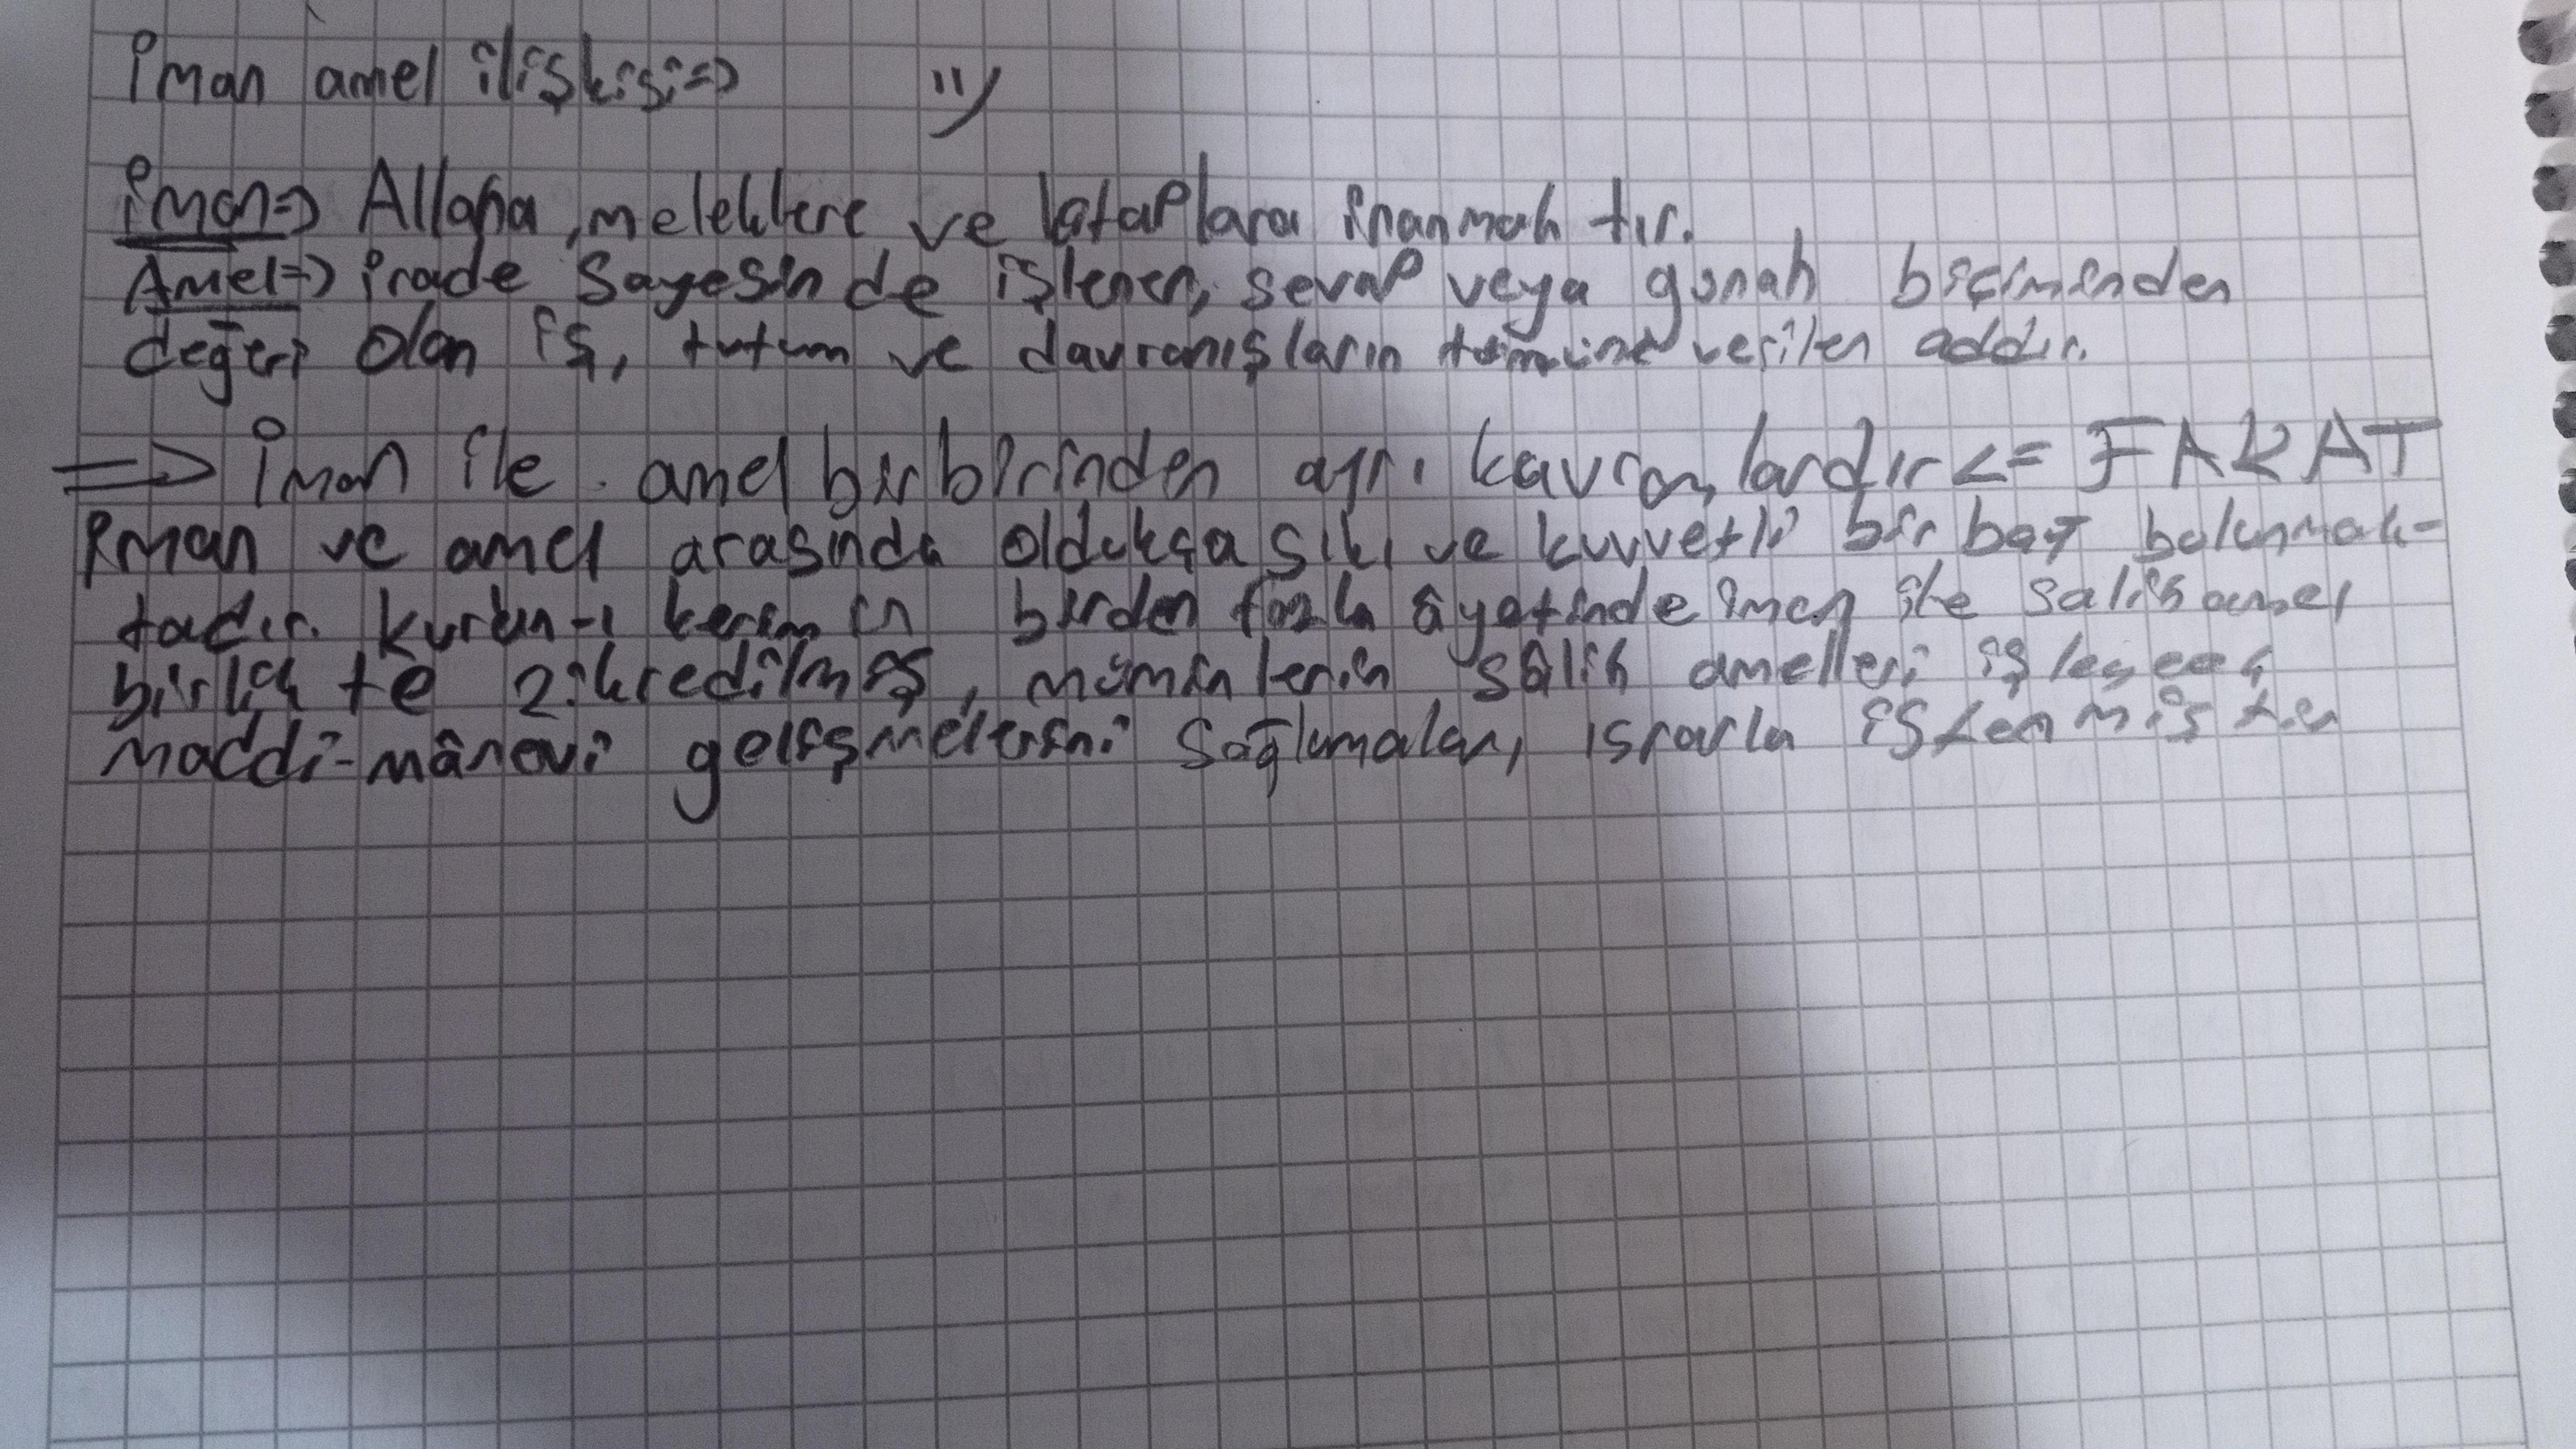 iman amel ilişkisi => ")
iman=> Allaha, meleklere ve kitaplara inanmak tır.
Amel=> irade Sayesin de işlenen, sevap veya günah biçiminden
değeri olan iş, tutum ve davranışların tümüne verilen addır.
=> iman ile amel birbirinden ayrı kavramlardır <= FAKAT
iman ve amel arasında oldukça sıkı ve kuvvetli bir bağ bulunmak-
tadır. kurân-ı kerim in birden fazla âyetinde iman ile salih amel
birlik te zikredilmiş, müminlerin sâlih amelleri işleyerek
maddi-mânevi gelişmelerini sağlamaları ısrarla istenmiş tir